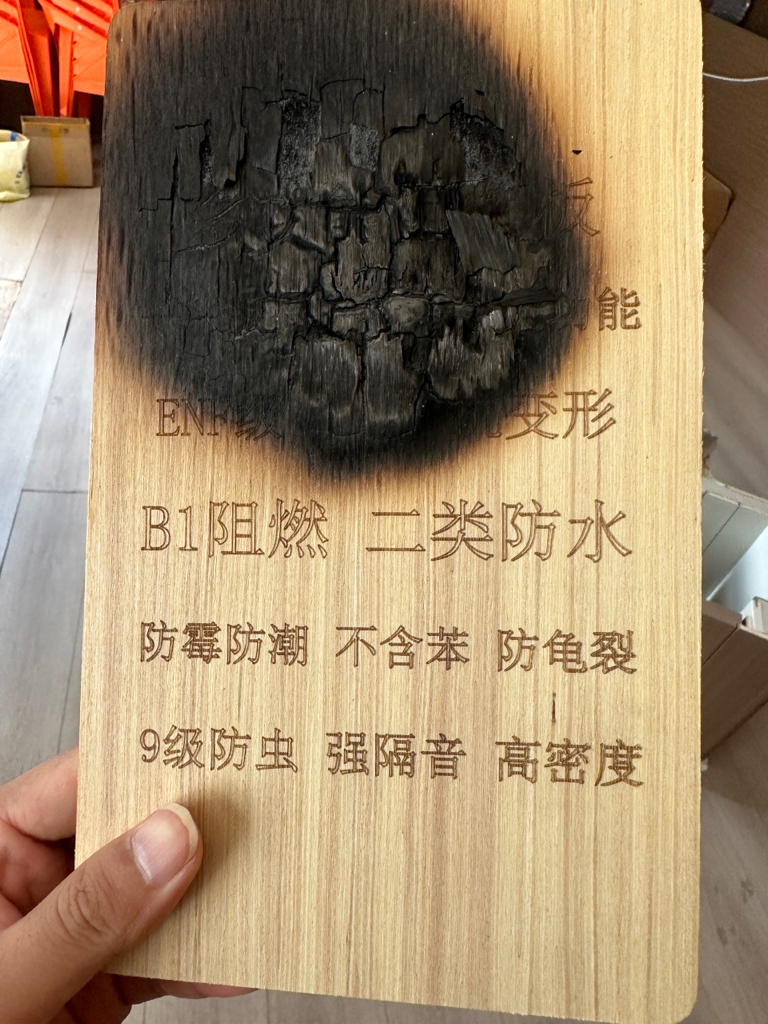 板
能
EN级 变形
B1阻燃 二类防水
防霉防潮 不含苯 防龟裂
9级防虫 强隔音 高密度